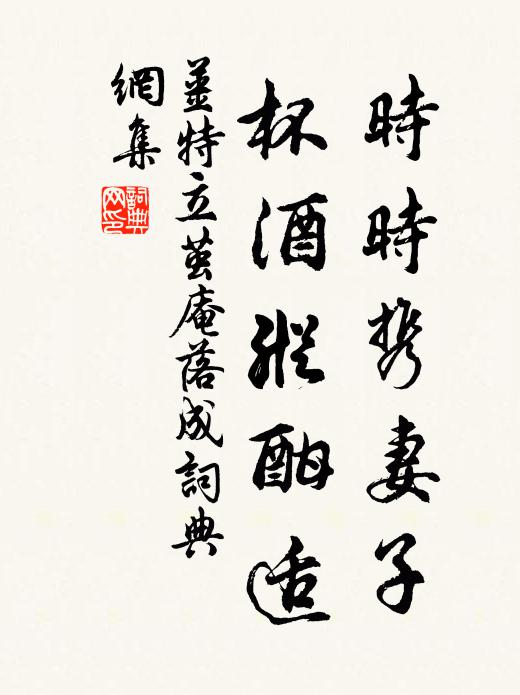 時時携妻子
杯酒縱酣适
薑特立茧庵落成詞典
網集
詞典
网印